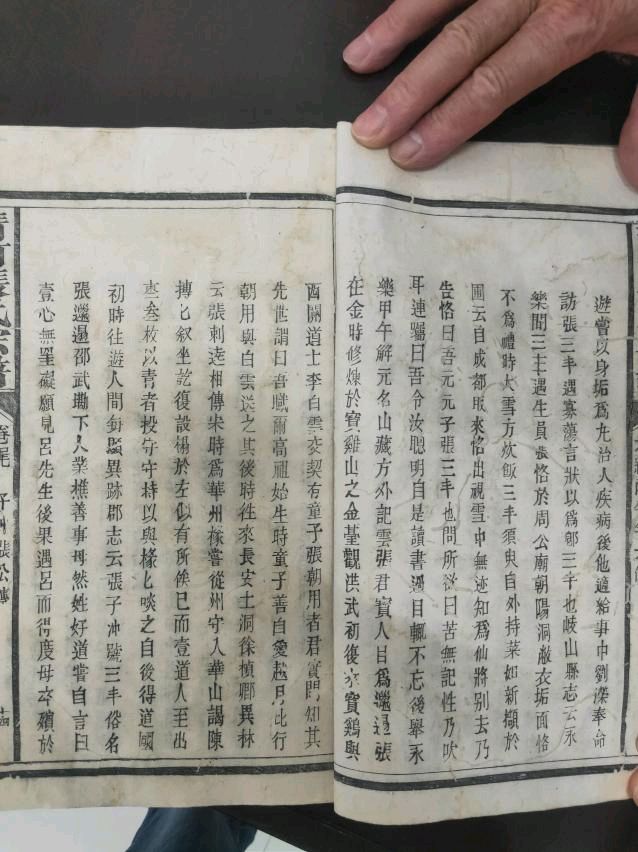 遊嘗以身垢爲丸治人疾病後他適給事中劉濚奉命
訪張三丰遇寡蕩言狀以爲郎三丰也岐山縣志云永
樂間三丰遇生員張恪於周公廟朝陽洞敝衣垢面恪
不爲禮時大雪方炊飯三丰須臾自外持菜如新擷於
圃云自成都取來恪出視雪中無迹知爲仙將別去乃
告恪曰吾元元子張三丰也問所欲曰苦無記性乃吹
耳連囑曰吾令汝聰明自是讀書過目輒不忘後舉永
樂甲午解元名山藏方外記雲張君寶人目爲邋遢張
在金時修煉於寶雞山之金臺觀洪武初復來寶鷄與
西關道士李白雲交契有童子張朝用者君寶問知其
先世謂曰吾賤爾高祖始生時童子善自愛越月此行
朝用與白雲送之其後時往來長安土洞徐禎卿異林
云張刺達相傳宋時爲華州椽嘗從州守入華山謁陳
摶匕叙坐訖復設榻於左似有所俟已而壹道人至出
叁枚以青者投守守持以與椽匕啖之自後得道國
初時往遊人間銜賜異跡郡志云張子沖號三丰俗名
張邋遢邵武勘下人業樵善事母然姓好道嘗自言曰
壹心無罣礙願見呂先生後果遇呂而得度母卒殯於
清河張氏宗譜
子沖張公傳
十四